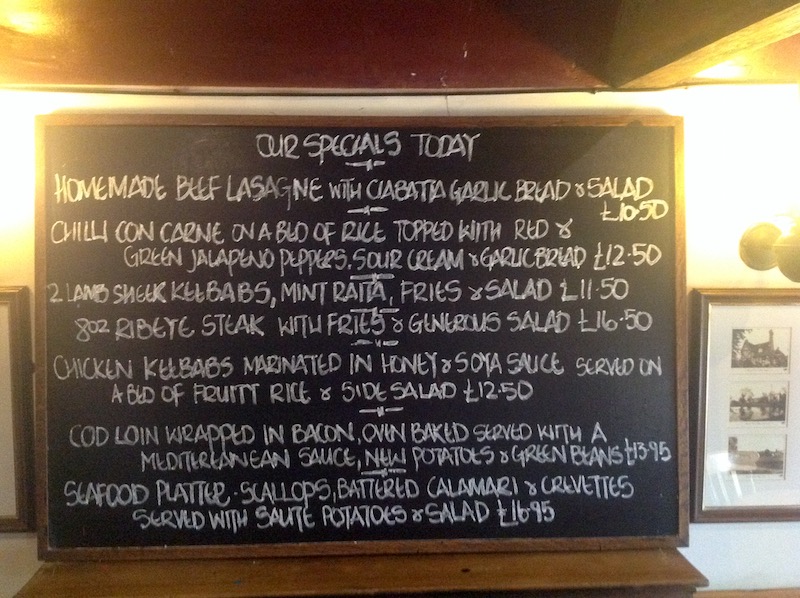 OUR SPECIALS TODAY
HOMEMADE BEEF LASAGNE WITH CIABATTA GARLIC BREAD & SALAD
£10.50
CHILLI CON CARNE ON A BED OF RICE TOPPED WITH RED &
GREEN JALAPENO PEPPERS, SOUR CREAM & GARLIC BREAD £12.50
2 LAMB SHEEK KEEBABS, MINT RAITA, FRIES & SALAD £11.50
8OZ RIBEYE STEAK WITH FRIES & GENEROUS SALAD £16.50
CHICKEN KEEBABS MARINATED IN HONEY & SOYA SAUCE SERVED ON
A BED OF FRUITT RICE & SIDE SALAD £12.50
COD LOIN WRAPPED IN BACON, OVEN BAKED SERVED WITH A
MEDITEREANEAN SAUCE, NEW POTATOES & GREEN BEANS £13.95
SEAFOOD PLATTER - SCALLOPS, BATTERED CALAMARI & CREVETTES
SERVED WITH SAUTE POTATOES & SALAD £16.95